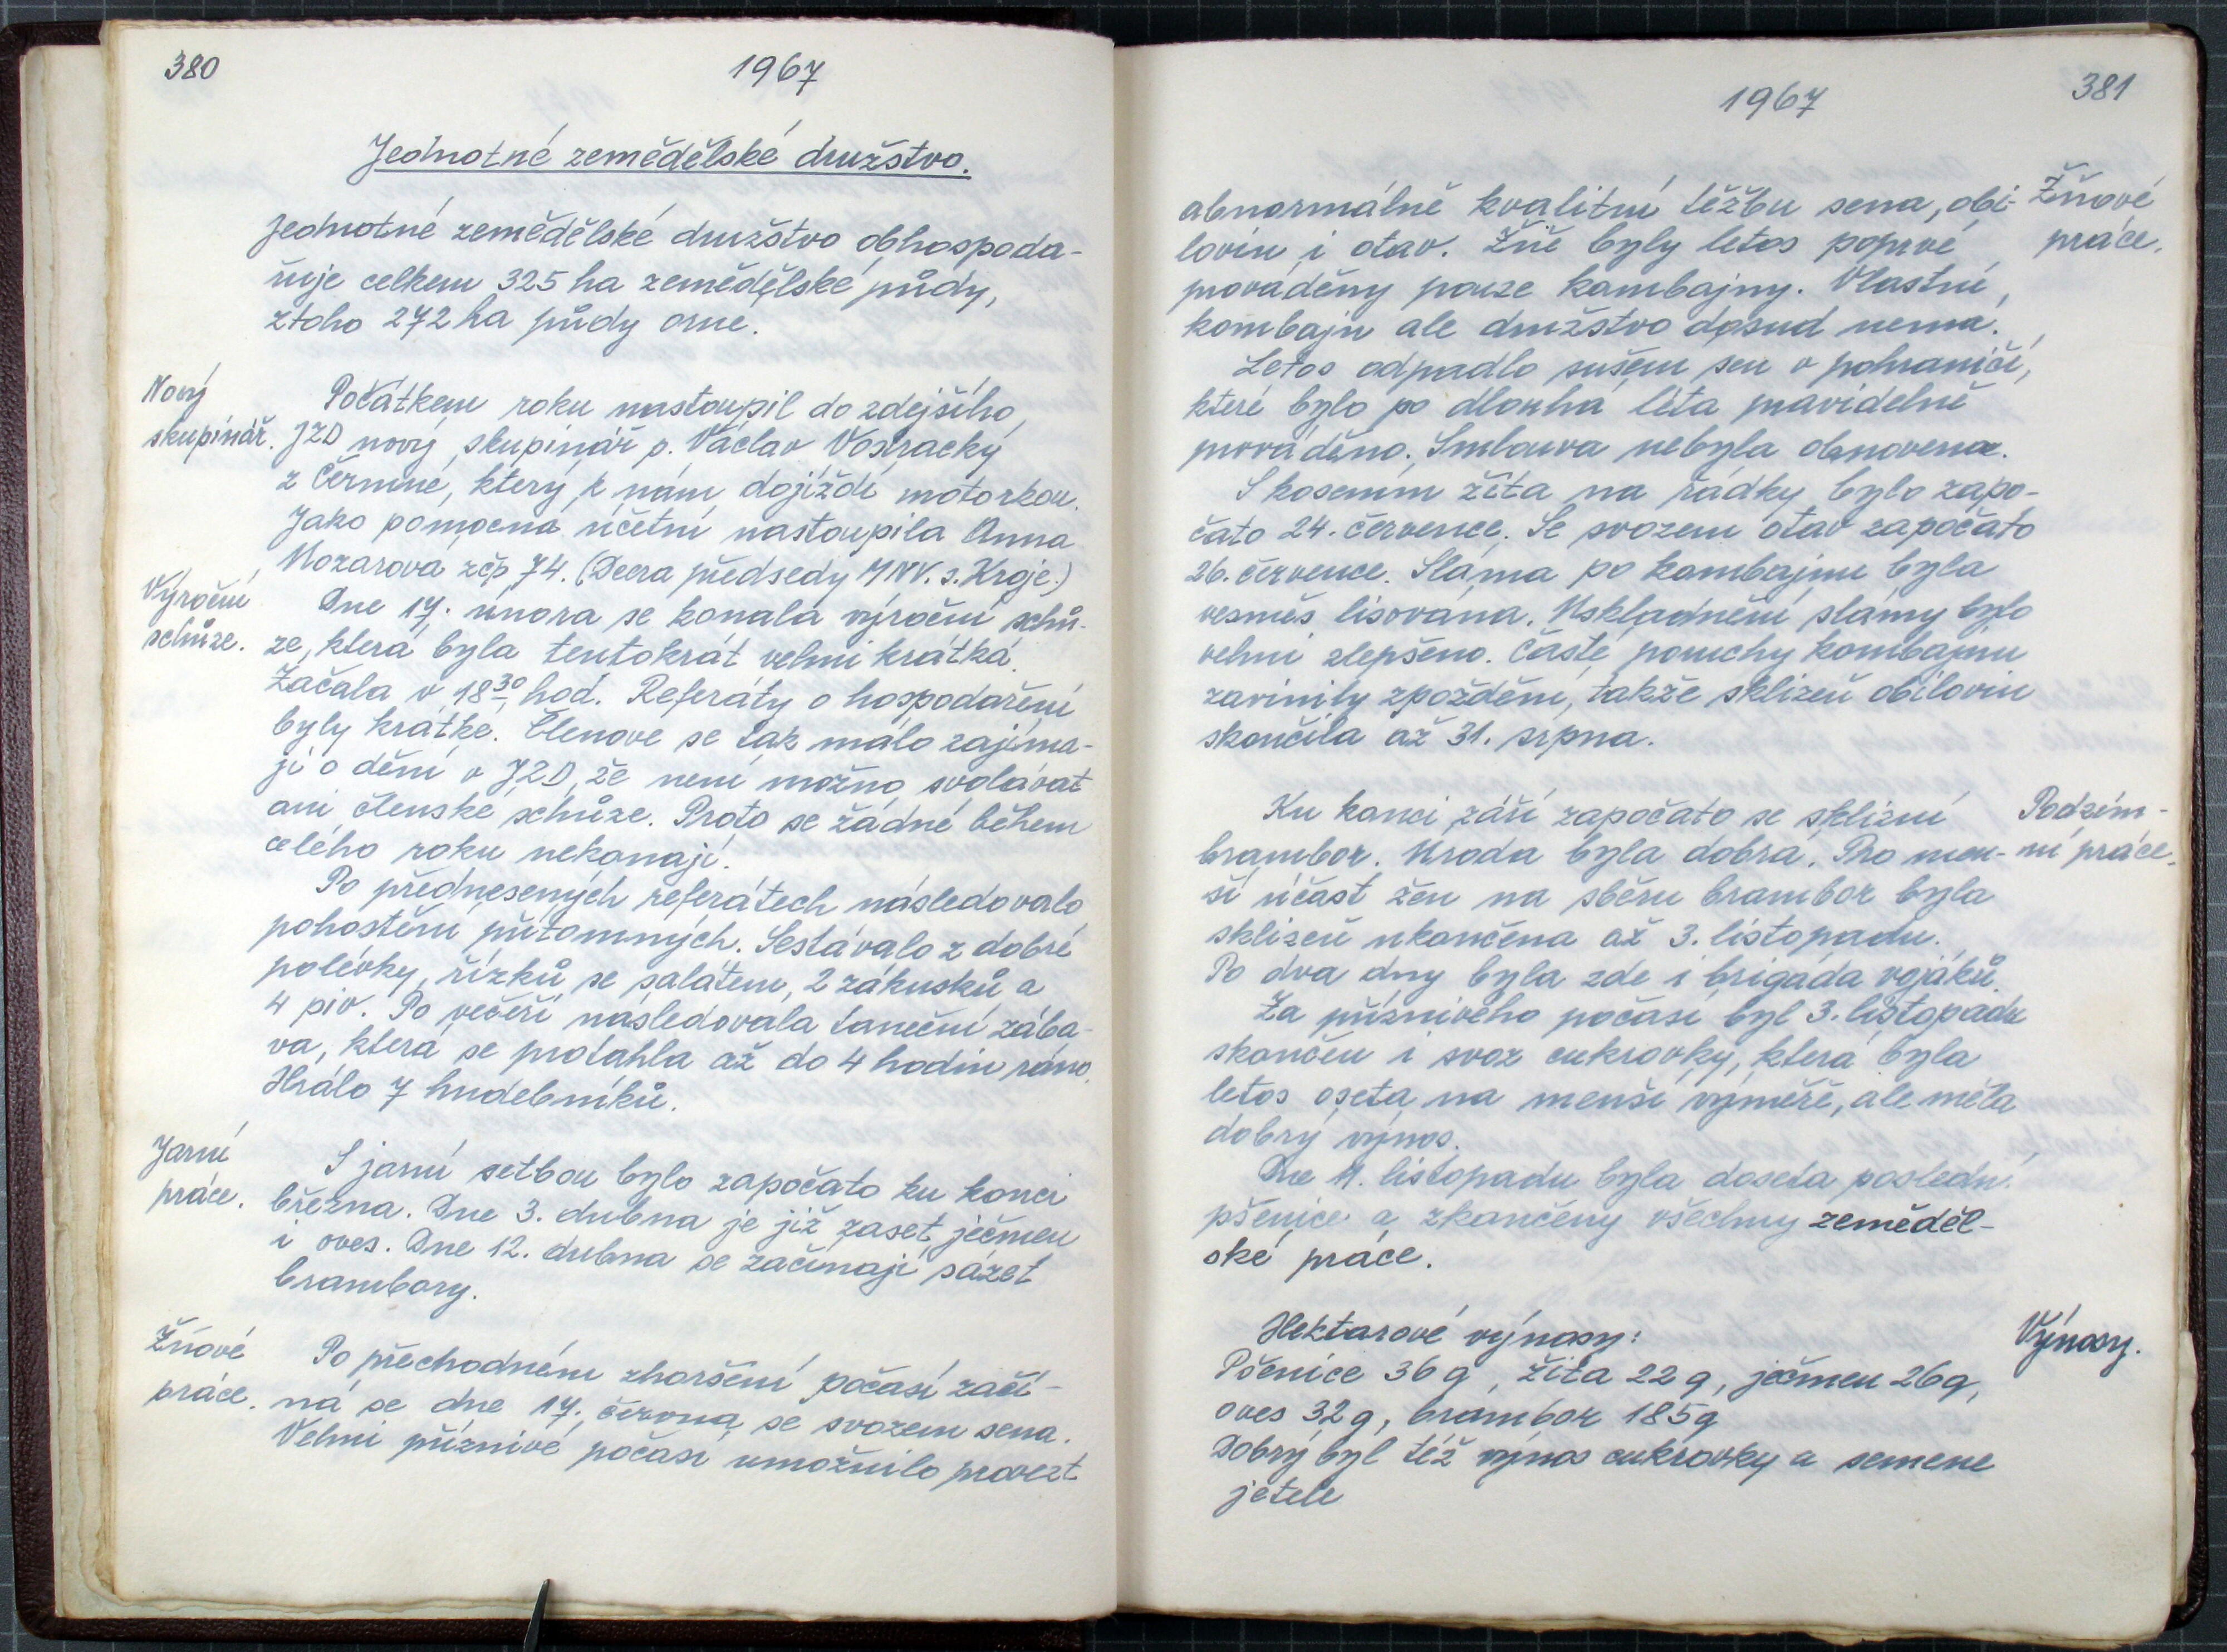 380
1967
Jednotné zemědělské družstvo.
Jednotné zemědělské družstvo obhospoda-
řuje celkem 325 ha zemědělské půdy,
z toho 272 ha půdy orné.
Nový
skupinář.
Počátkem roku nastoupil do zdejšího
JZD nový skupinář p. Václav Vostracký
z Čermné, který k nám dojíždí motorkou.
Jako pomocná účetní nastoupila Anna
zčp 74. (Dcera předsedy MNV. s. Kroje.)
Výroční
schůze.
Dne 17. února se konala výroční schů-
ze, která byla tentokrát velmi krátká.
Začala v 18 30 hod. Referáty o hospodaření
byly krátké. Členové se tak málo zajíma-
jí o dění v JZD, že není možno svolávat
ani členské schůze. Proto se žádné během
celého roku nekonají.
Po přednesených referátech následovalo
pohostění přítomných. Sestávalo z dobré
polévky, řízků se salátem, 2 zákusků a
4 piv. Po večeři následovala taneční zába-
va, která se protáhla až do 4 hodin ráno.
Hrálo 7 hudebníků.
Jarní
práce.
S jarní setbou bylo započato ku konci
března. Dne 3. dubna je již zaset ječmen
i oves. Dne 12. dubna se začínají sázet
brambory.
Žňové
práce.
Po přechodném zhoršení počasí začí-
ná se dne 17. června se svozem sena.
Velmi příznivé počasí umožnilo provézt
1967
381
abnormálně kvalitní těžbu sena, obi-
lovin i otav. Žně byly letos poprvé
prováděny pouze kombajny. Vlastní
kombajn ale družstvo dosud nemá.
Žňové
práce.
Letos odpadlo sušení sen v pohraničí,
které bylo po dlouhá léta pravidelně
prováděno. Smlouva nebyla obnovena.
S kosením žita na řádky bylo zapo-
čato 24. července. Se svozem otav započato
26. července. Sláma po kombajnu byla
vesměs lisována. Uskladnění slámy bylo
velmi zlepšeno. Časté poruchy kombajnu
zavinily zpoždění, takže sklizeň obilovin
skončila až 31. srpna.
Ku konci září započato se sklizní
brambor. Úroda byla dobrá. Pro men-
ší účast žen na sběru brambor byla
sklizeň ukončena až 3. listopadu.
Po dva dny byla zde i brigáda vojáků.
Podzim-
ní práce.
Za příznivého počasí byl 3. listopadu
skončen i svoz cukrovky, která byla
letos oseta na menší výměře, ale měla
dobrý výnos.
Dne 11. listopadu byla doseta poslední
pšenice a zkončeny všechny zeměděl-
ské práce.
Hektarové výnosy:
Výnosy.
Pšenice 36 q, žita 22 q, ječmen 26 q,
oves 32 q, brambor 185 q
Dobrý byl též výnos cukrovky a semene
jetele